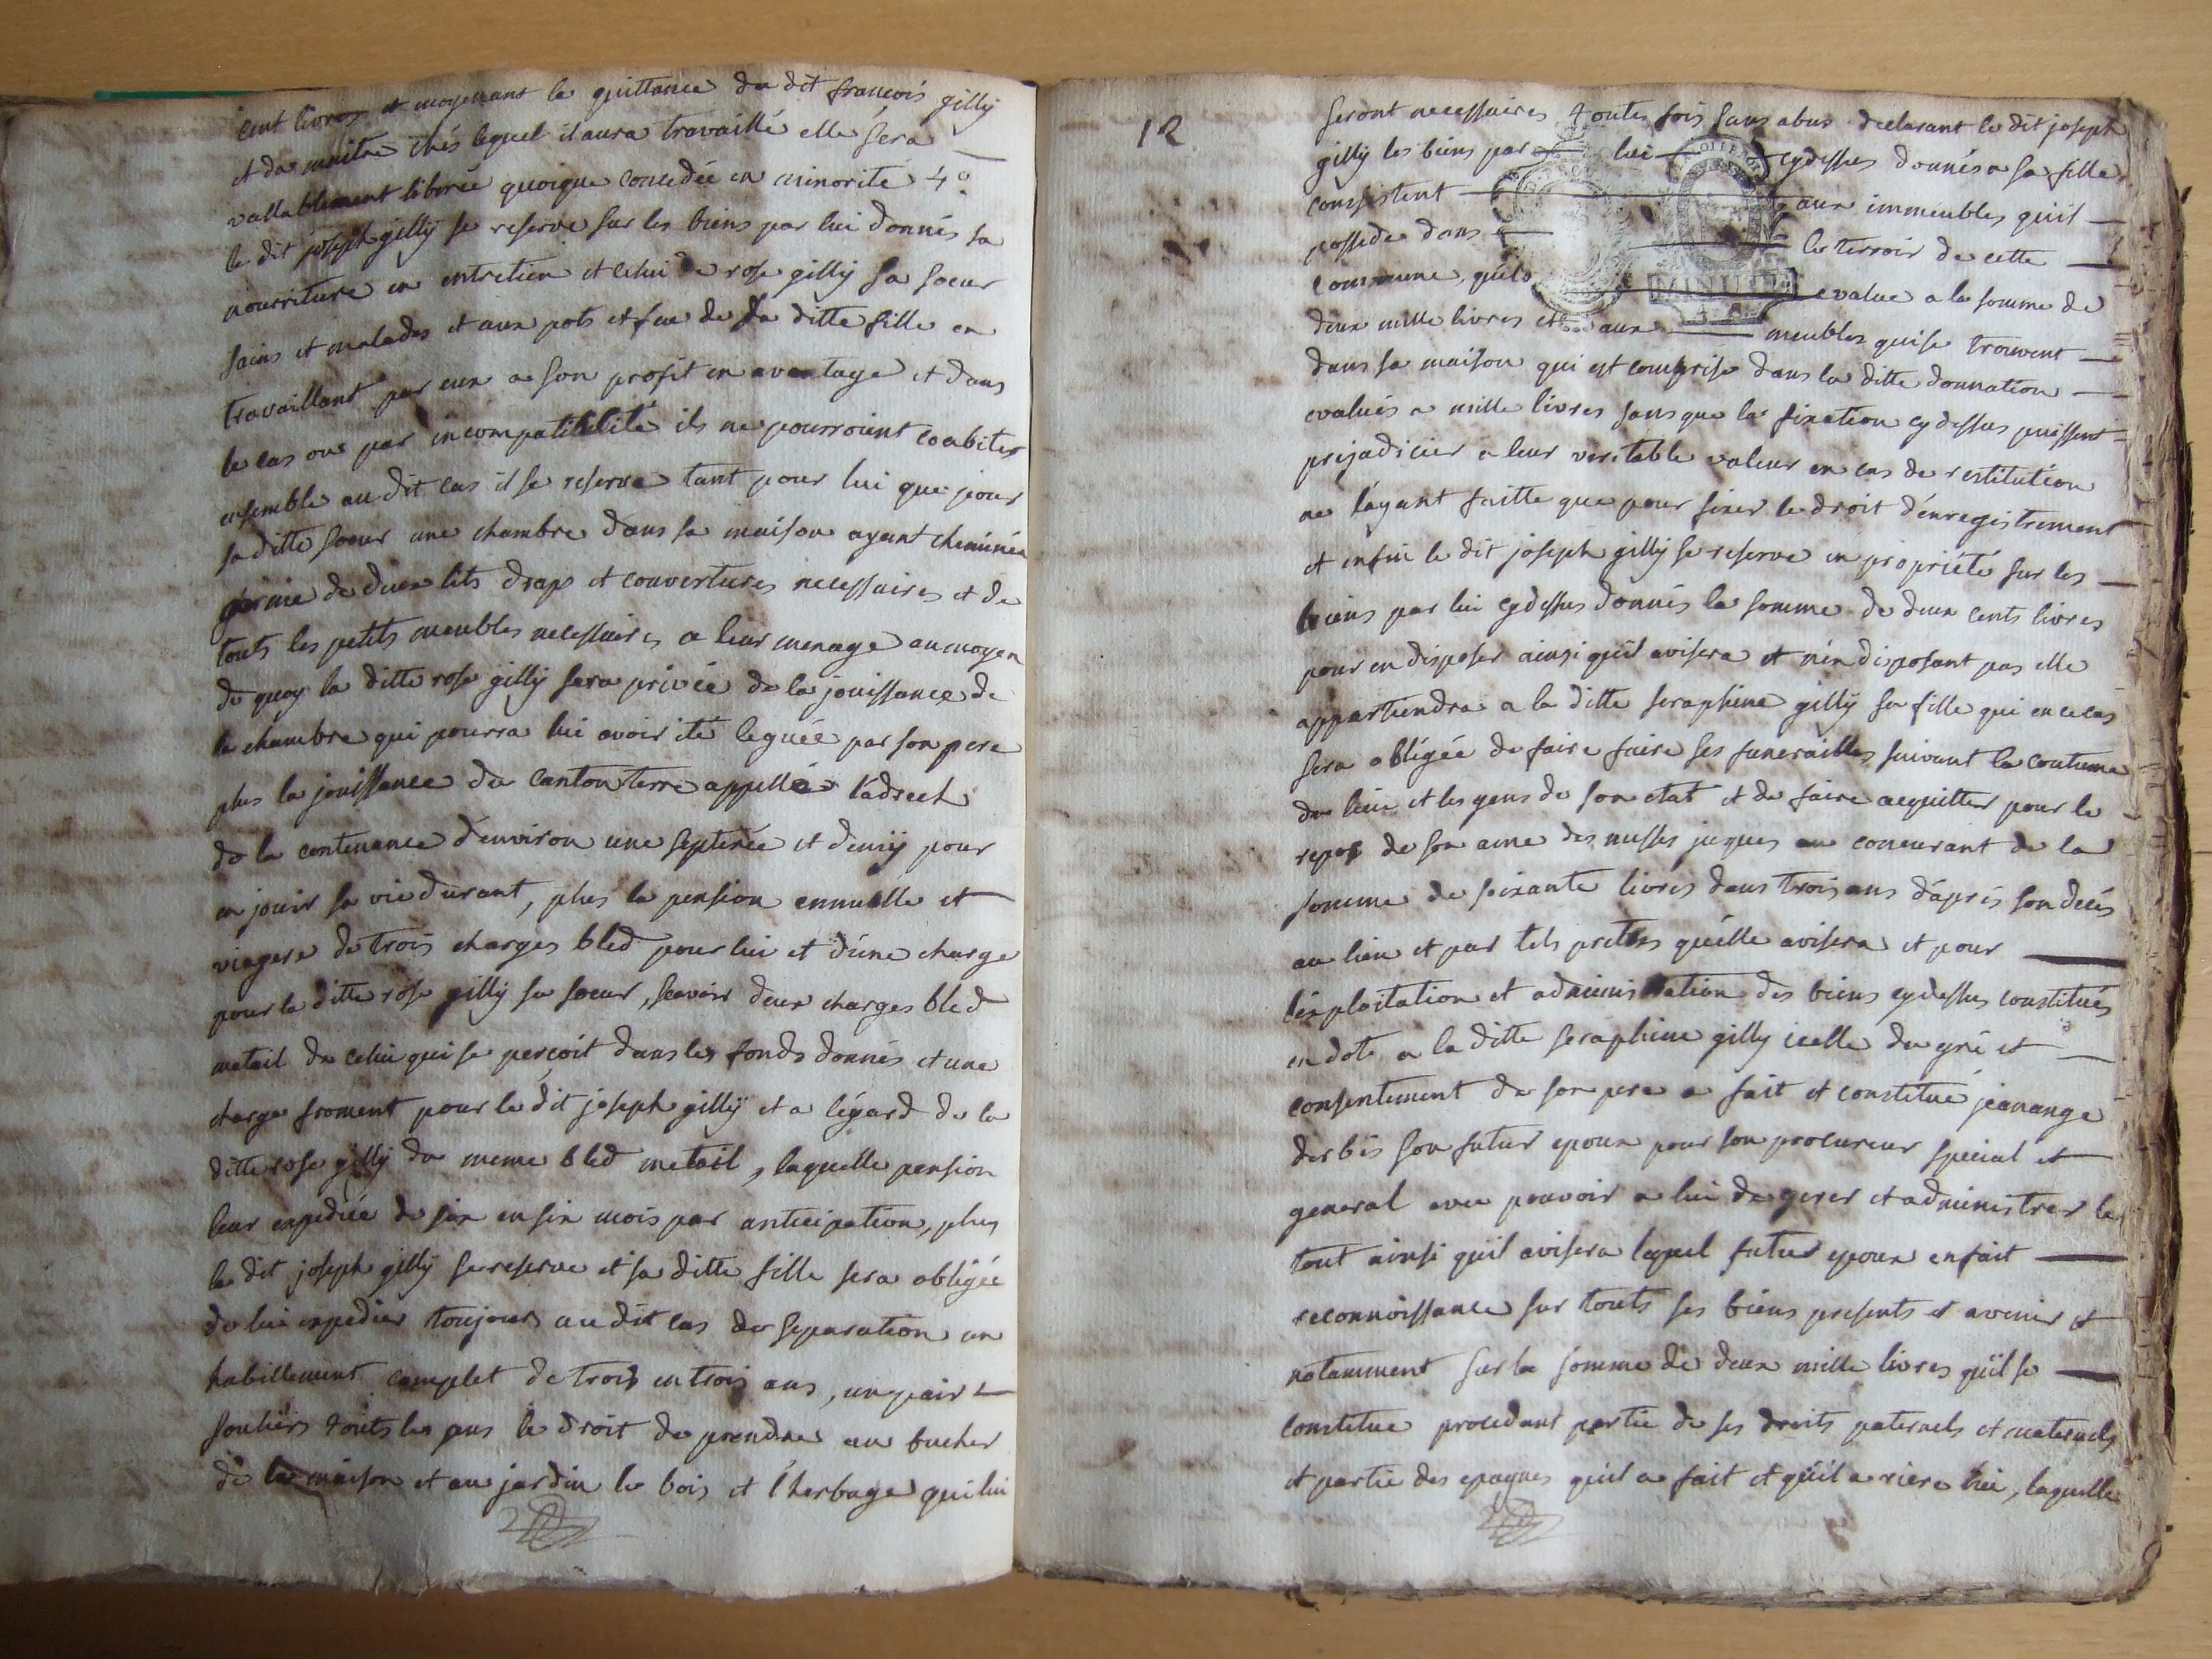 cent livres et moyenant la quittance du dit francois gilly
et du maitre chés lequel il aura travaillé elle sera
vallablement liberée quoique concedée en minorité 4.º
le dit joseph gilly se reserve sur les biens par lui donnés sa
nourriture en entretien et celui de rose gilly sa soeur
sains et malades et aux pots et feu de sa ditte fille en
travaillant par eux a son profit en avantage et dans
le cas ou par incompatibilité ils ne pourroient coabiter
ensemble au dit cas il se reserve tant pour lui que pour
sa ditte soeur une chambre dans sa maison ayant cheminée
garnie de deux lits draps et couvertures necessaires et de
touts les petits meubles necessaires a leur menage au moyen
de quoy la ditte rose gilly sera privée de la jouissance de
la chambre qui pourra lui avoir été leguée par son pere
plus la jouissance du canton terre appellé l'adrech
de la contenance d'environ une septerée et demÿ pour
en jouir sa vie durant, plus la pension annuelle et
viagere de trois charges bled pour lui et d'une charge
pour la ditte rose gilly sa soeur, scavoir deux charges bled
metail de celui qui se perçoit dans les fonds donnés et une
charge froment pour le dit joseph gillÿ et a l'égard de la
ditte rose gilly du meme bled metail, laquelle pension
leur expediée de six en six mois par anticipation, plus
le dit joseph gilly se reserve et sa ditte fille sera obligée
de lui expedier toujours au dit cas de separation un
habillement complet de trois en trois ans, un pair
souliers touts les ans le droit de prendre au bucher
de la maison et au jardin le bois et l'herbage qui lui
12
seront necessaires toutes fois sans abus declarant le dit joseph
gilly les biens par lui cydessus donnés a sa fille
consistent aux immeubles quil
possede dans le terroir de cette
commune, quil evalue a la somme de
MINUTE
deux mille livres et aux meubles qui se trouvent
dans sa maison qui est comprise dans la ditte donnation
evalués a mille livres sans que la fixation cydessus puissent
prejadicier a leur veritable valeur en cas de restitution
ne l'ayant faitte que pour fixer le droit d'enregistrement
et enfin le dit joseph gilly se reserve en propriété sur les
biens par lui cydessus donnés la somme de deux cents livres
pour en disposer ainsi quil avisera et n'en disposant pas elle
appartiendra a la ditte seraphine gillÿ sa fille qui en ce cas
sera obligée de faire faire ses funerailles suivant la coutume
du lieu et les gens de son etat et de faire acquitter pour le
repos de son ame des messes juques au concurant de la
somme de soixante livres dans trois ans d'aprés son decés
au lieu et par tels pretres qu'elle avisera et pour
l'exploitation et administration des biens cydessus constitués
en dote a la ditte seraphine gilly icelle du gré et
consentement de son pere a fait et constitué jean ange
derbés son futur epoux pour son procureur special et
general avec pouvoir a lui de gerer et administrer le
tout ainsi qu'il avisera lequel futur epoux en fait
reconnoissance sur touts ses biens presents et avenir et
notamment sur la somme de deux mille livres qu'il se
constitue procedant partie de ses droits paternels et maternels
et partie des epagnes qu'il a fait et qu'il a riere lui, laquelle